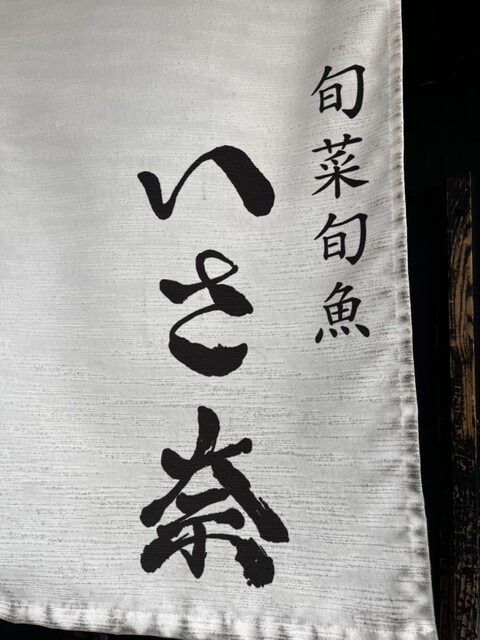 旬菜旬魚
いさ奈